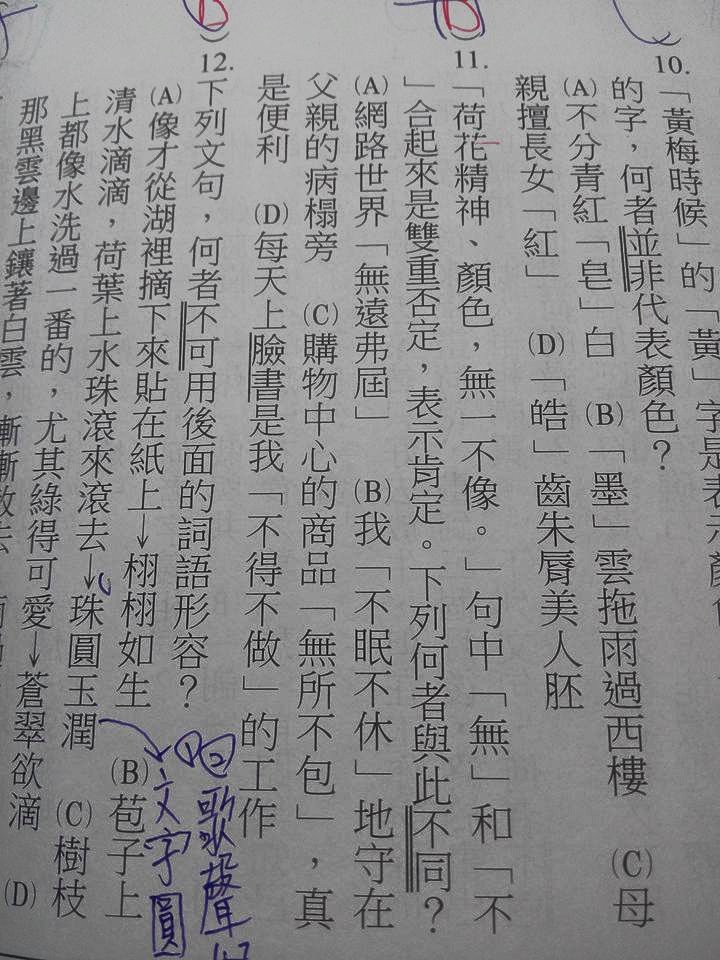 10.「黃梅時候」的「黃」字是表示顏
的字，何者並非代表顏色？
(A)不分青紅「皂」白 (B)「墨」雲拖雨過西樓 (C)母
親擅長女「紅」 (D)「皓」齒朱脣美人胚
11.「荷花精神、顏色，無一不像。」句中「無」和「不
」合起來是雙重否定，表示肯定。下列何者與此不同？
(A)網路世界「無遠弗屆」 (B)我「不眠不休」地守在
父親的病榻旁 (C)購物中心的商品「無所不包」，真
是便利 (D)每天上臉書是我「不得不做」的工作
12.下列文句，何者不可用後面的詞語形容？
(A)像才從湖裡摘下來貼在紙上→栩栩如生 (B)苞子上
清水滴滴，荷葉上水珠滾來滾去→珠圓玉潤 (C)樹枝
上都像水洗過一番的，尤其綠得可愛→蒼翠欲滴 (D)
那黑雲邊上鑲著白雲，漸漸散去
①②歌聲
文字圓
B
B